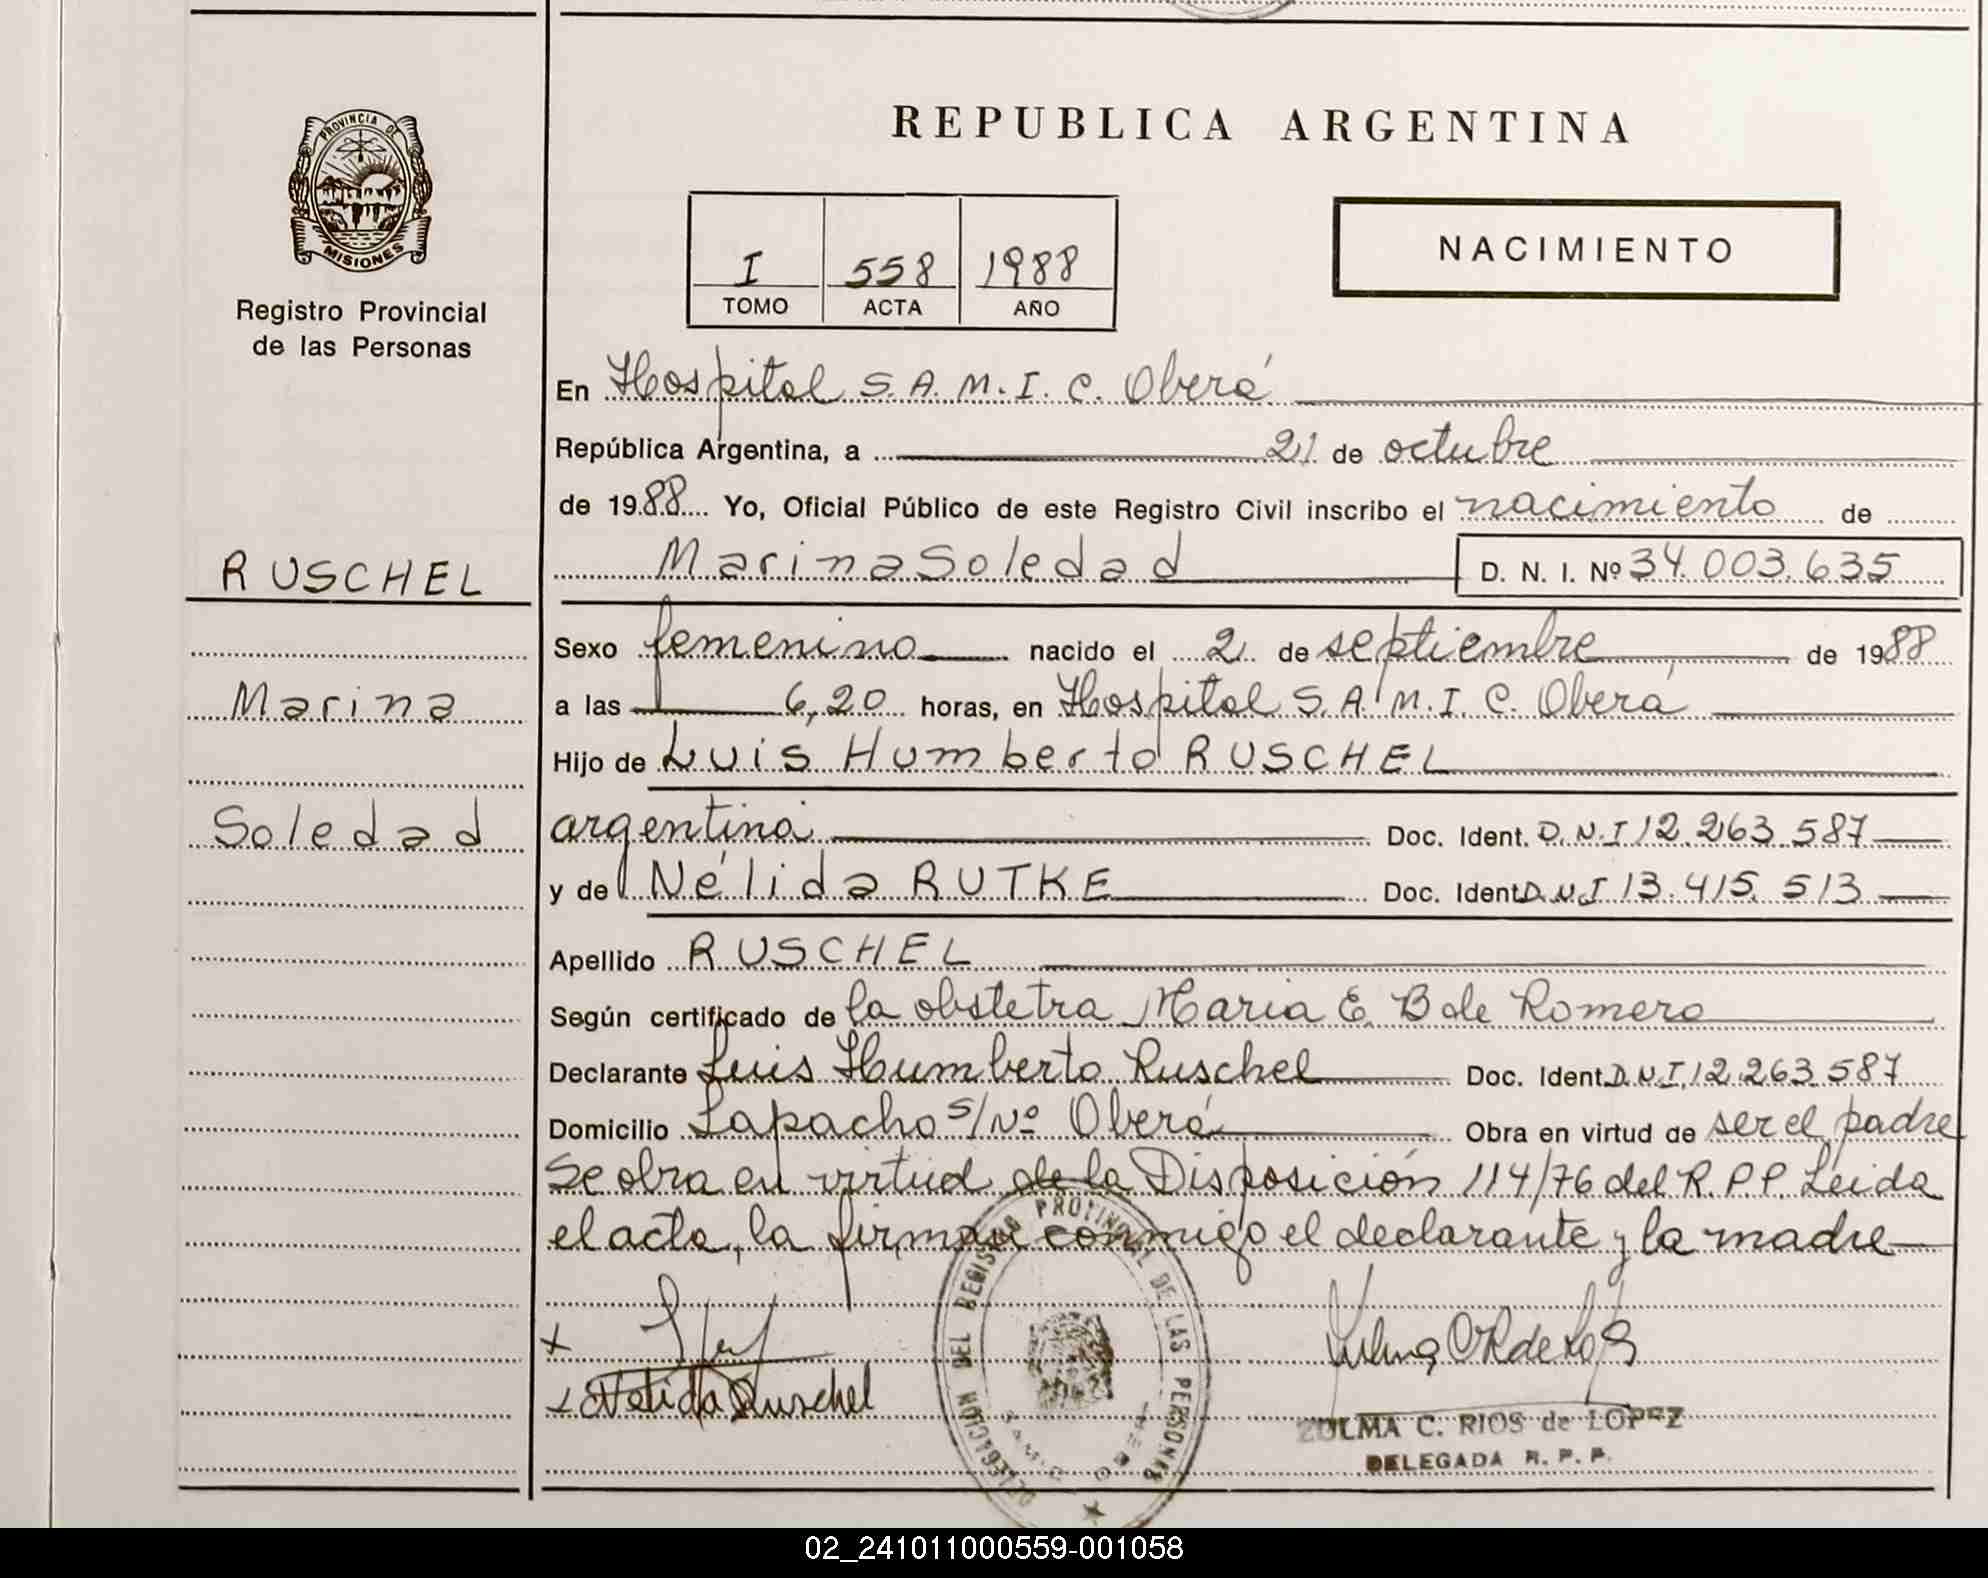 PROVINCIA DE
MISIONES
Registro Provincial
de las Personas
RUSCHEL
Marina
Soledad
REPUBLICA ARGENTINA
I 558 1988
TOMO ACTA AÑO
NACIMIENTO
En Hospital S.A.M.I.C. Oberá
República Argentina, a 21 de octubre
de 1988 Yo, Oficial Público de este Registro Civil inscribo el nacimiento de
Marina Soledad D. N. I. Nº 34.003.635
Sexo femenino nacido el 2 de septiembre de 1988
a las 6,20 horas, en Hospital S.A.M.I.C. Oberá
Hijo de Luis Humberto RUSCHEL
argentina Doc. Ident. D.N.I 12.263.587
y de Nélida RUTKE Doc. Ident. D.N.I 13.415.513
Apellido RUSCHEL
Según certificado de la obstetra Maria E. B de Romero
Declarante Luis Humberto Ruschel Doc. Ident. D.N.I. 12.263.587
Domicilio Lapacho s/Nº Oberá Obra en virtud de ser el padre
Se obra en virtud de la Disposición 114/76 del R.P.P. Leida
el acta, la firman conmigo el declarante y la madre
Nelida Ruschel
DELEGACION DEL REGISTRO PROVINCIAL DE LAS PERSONAS
ZULMA C. RIOS de LOPEZ
DELEGADA R. P. P.
02_241011000559-001058